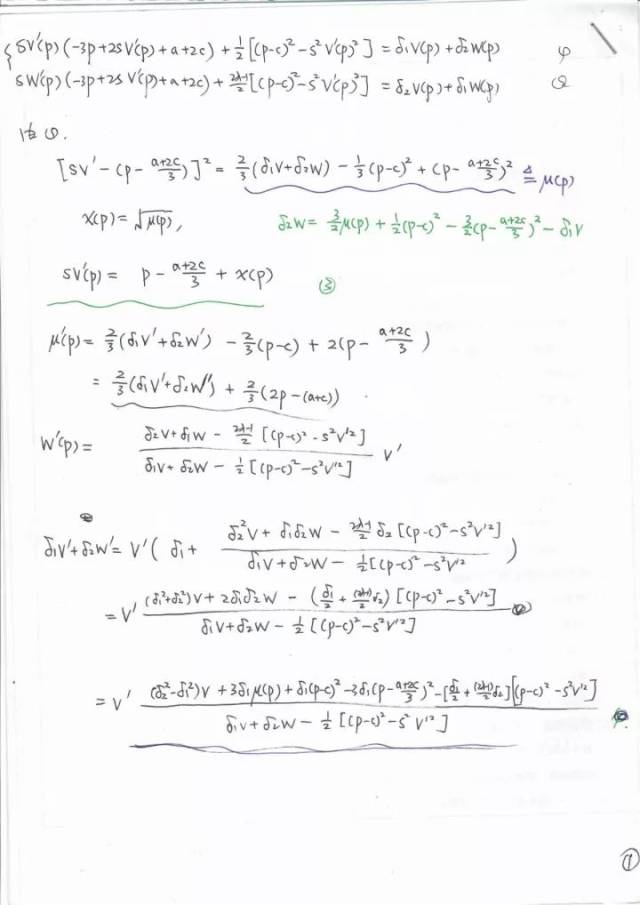 { SV'(p)(-3p+2SV'(p)+a+2c) + 1/2[(p-c)²-S²V'(p)²] = δ₁V(p)+δ₂W(p) φ
SW'(p)(-3p+2SV'(p)+a+2c) + (2λ-1)/2[(p-c)²-S²V'(p)²] = δ₂V(p)+δ₁W(p)
由 φ.
[SV'-(p-(a+2c)/3)]² = 2/3(δ₁V+δ₂W) - 1/3(p-c)² + (p-(a+2c)/3)² ≜ μ(p)
x(p)=√μ(p), δ₂W = 3/2μ(p) + 1/2(p-c)² - 3/2(p-(a+2c)/3)² - δ₁V
SV'(p) = p - (a+2c)/3 + x(p) ③
μ'(p) = 2/3(δ₁V'+δ₂W') - 2/3(p-c) + 2(p-(a+2c)/3)
= 2/3(δ₁V'+δ₂W') + 2/3(2p-(a+c))
W'(p) = (δ₂V+δ₁W - (2λ-1)/2[(p-c)²-S²V'²])/(δ₁V+δ₂W - 1/2[(p-c)²-S²V'²]) V'
δ₁V'+δ₂W' = V'(δ₁ + (δ₂²V+δ₁δ₂W - (2λ-1)/2 δ₂[(p-c)²-S²V'²])/(δ₁V+δ₂W - 1/2[(p-c)²-S²V'²]))
= V' ((δ₁²+δ₂²)V+2δ₁δ₂W - (δ₁/2+(2λ-1)/2 δ₂)[(p-c)²-S²V'²])/(δ₁V+δ₂W - 1/2[(p-c)²-S²V'²])
= V' ((δ₂²-δ₁²)V+3δ₁μ(p)+δ₁(p-c)²-3δ₁(p-(a+2c)/3)²-[δ₁/2+(2λ-1)/2 δ₂][(p-c)²-S²V'²])/(δ₁V+δ₂W - 1/2[(p-c)²-S²V'²])
①